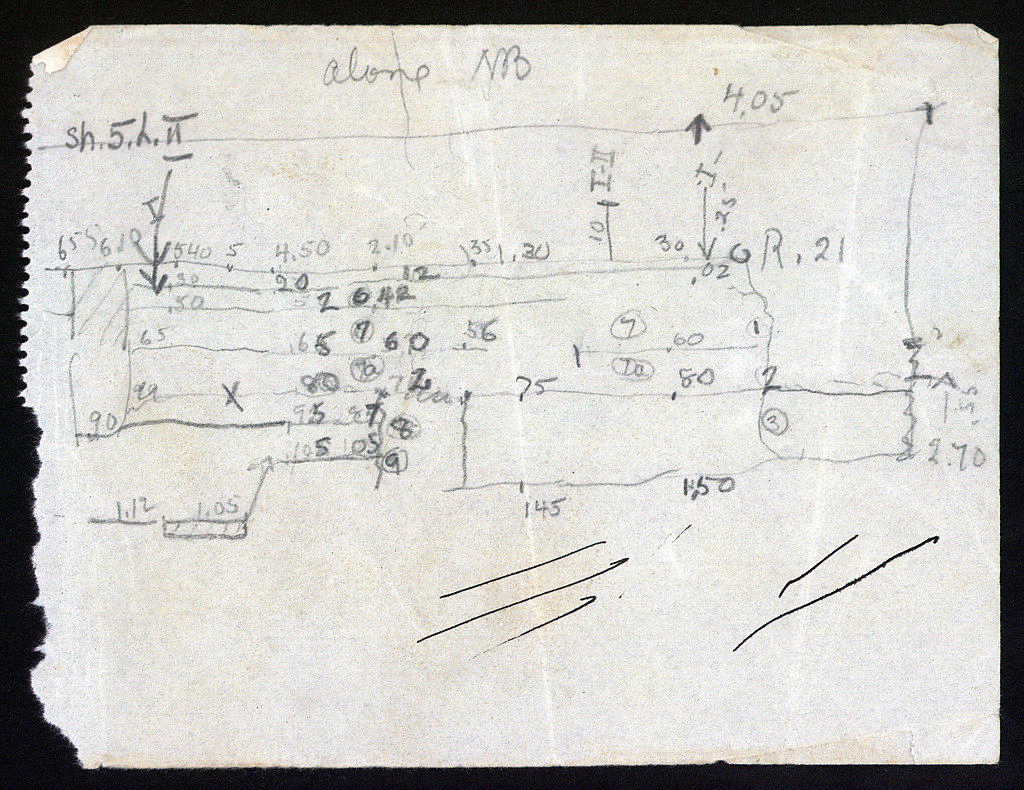 alone NB
4.05
Sh.5.L.II
I-II
10
.25
65 5 6.10 540 5 4.50 2.10 35 1.30 30 R.21
.02
.30 20 12
.50 5 2 6 .42
65 .65 7 60 .56 7 60 1
99 X 80 7a 72 75 7a 80 2
90 95 87 8 3 1.55
105 105 9 2.70
1.12 1.05 145 1.50